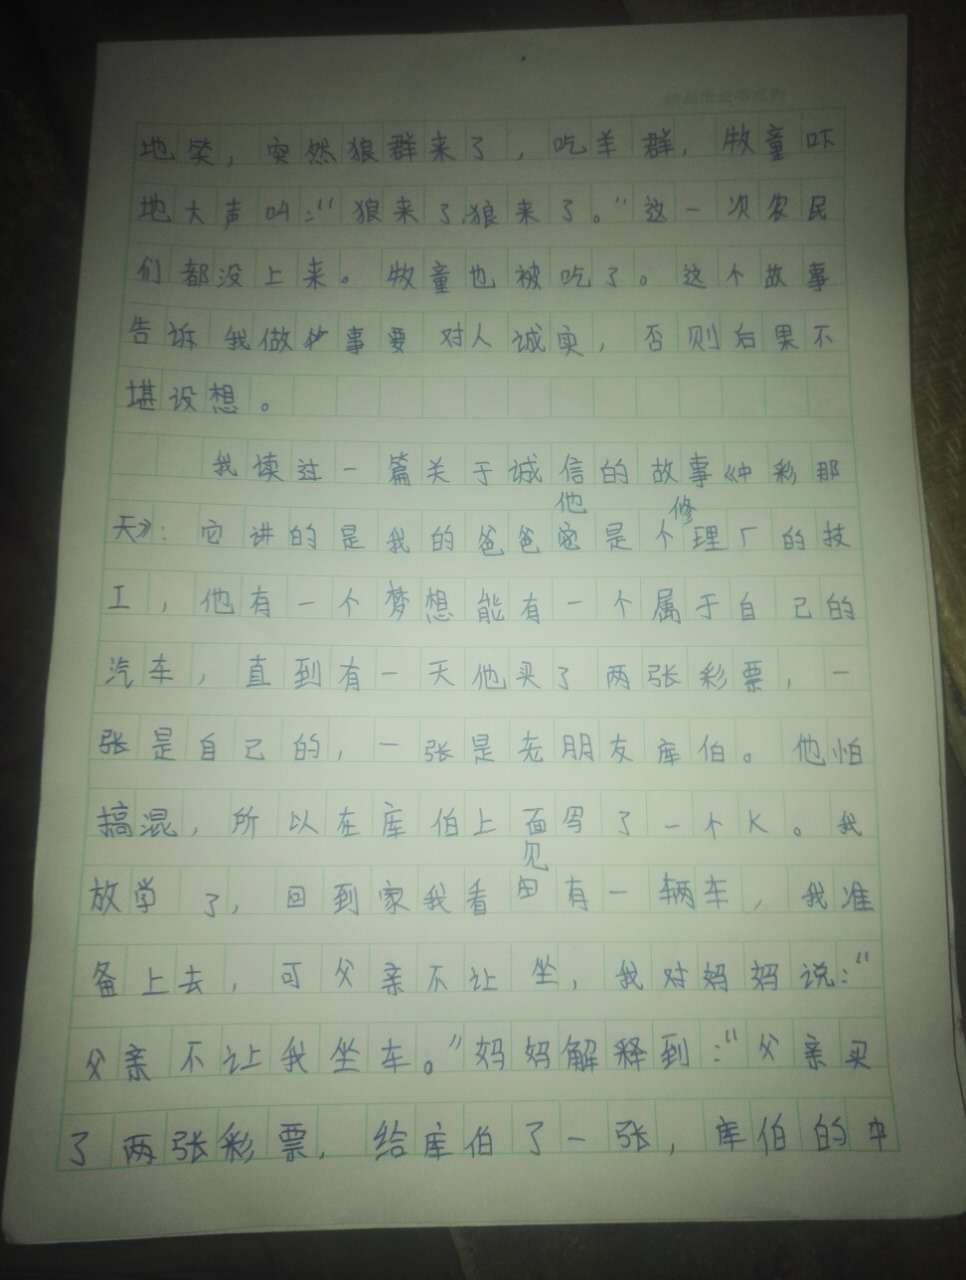 地笑，突然狼群来了，吃羊群，牧童吓
地大声叫：“狼来了狼来了。”这一次农民
们都没上来。牧童也被吃了。这个故事
告诉我做事要对人诚实，否则后果不
堪设想。
我读过一篇关于诚信的故事《中彩那
天》：它讲的是我的爸爸他是个修理厂的技
工，他有一个梦想能有一个属于自己的
汽车，直到有一天他买了两张彩票，一
张是自己的，一张是老朋友库伯。他怕
搞混，所以在库伯上面写了一个K。我
放学了，回到家我看见有一辆车，我准
备上去，可父亲不让坐，我对妈妈说：“
父亲不让我坐车。”妈妈解释到：“父亲买
了两张彩票，给库伯了一张，库伯的中